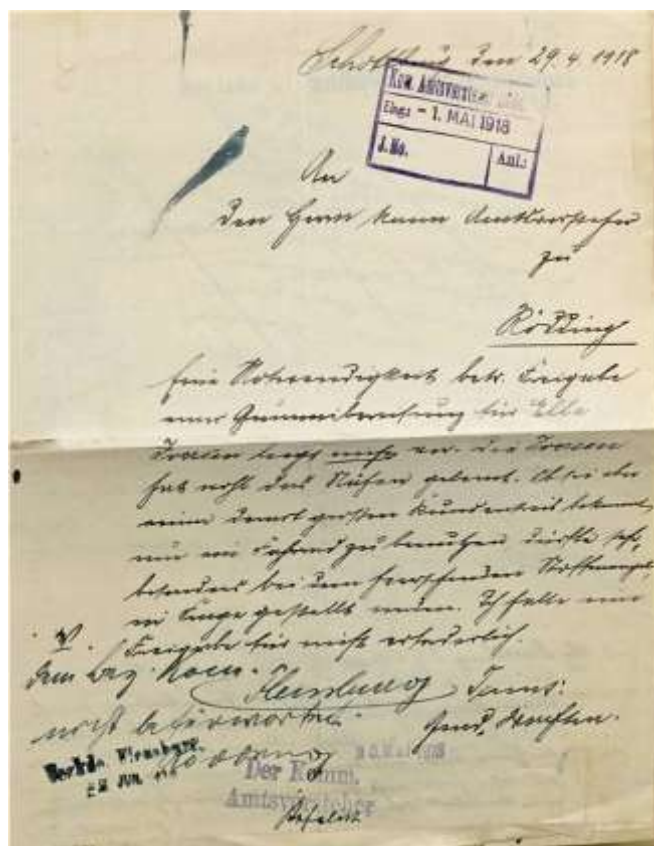 Schottburg den 29.4 1918
Kom. Amtsvorsteher
Eing: - 1. MAI 1918
J. No. Anl.:
An
den Herrn komm Amtsvorsteher
zu
Rödding
Eine Notwendigkeit betr. Freigabe
einer Gummibereifung für Elle
liegt nicht vor. die
hat wohl das Nähen gelernt. Ob sie aber
einen derart großen Kundenkreis bekommt,
um ein Fahrrad zu benutzen dürfte sehr,
besonders bei dem herrschenden Stoffmangel,
in Frage gestellt werden. Ich halte eine
Freigabe für nicht erforderlich.
dem Bez. Kom.
Flensburg
nicht befürwortet.
Flensburg
JUN
MAI 1918
Der Komm.
Amtsvorsteher